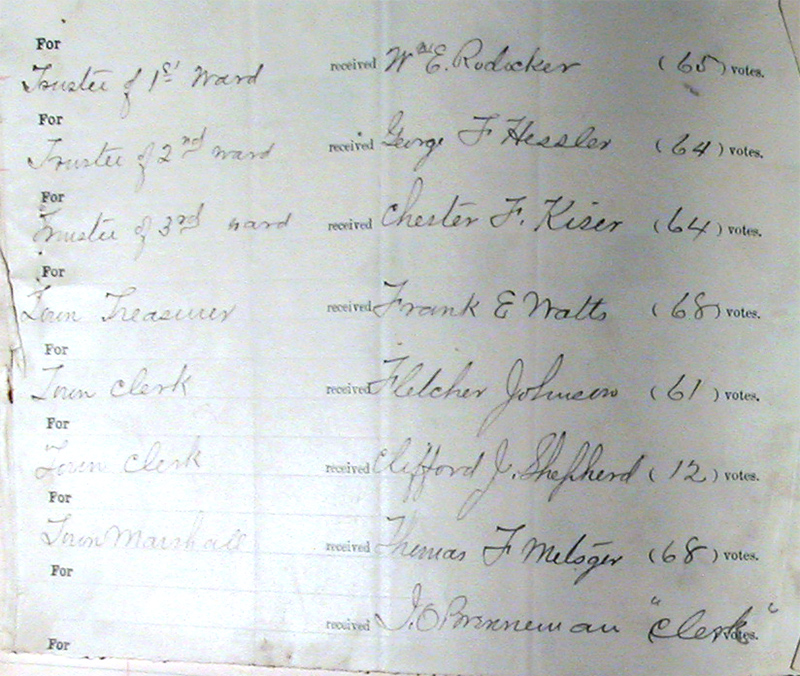 For
Trustee of 1st Ward received Wm E. Rodocker (65) votes.
For
Trustee of 2nd ward received George F Hessler (64) votes.
For
Trustee of 3rd ward received Chester F. Kiser (64) votes.
For
Town Treasurer received Frank E Watts (68) votes.
For
Town Clerk received Fletcher Johnson (61) votes.
For
Town Clerk received Clifford J. Shepherd (12) votes.
For
Town Marshall received Thomas F Metsger (68) votes.
For
received J. O Brenneman "Clerk" votes.
For